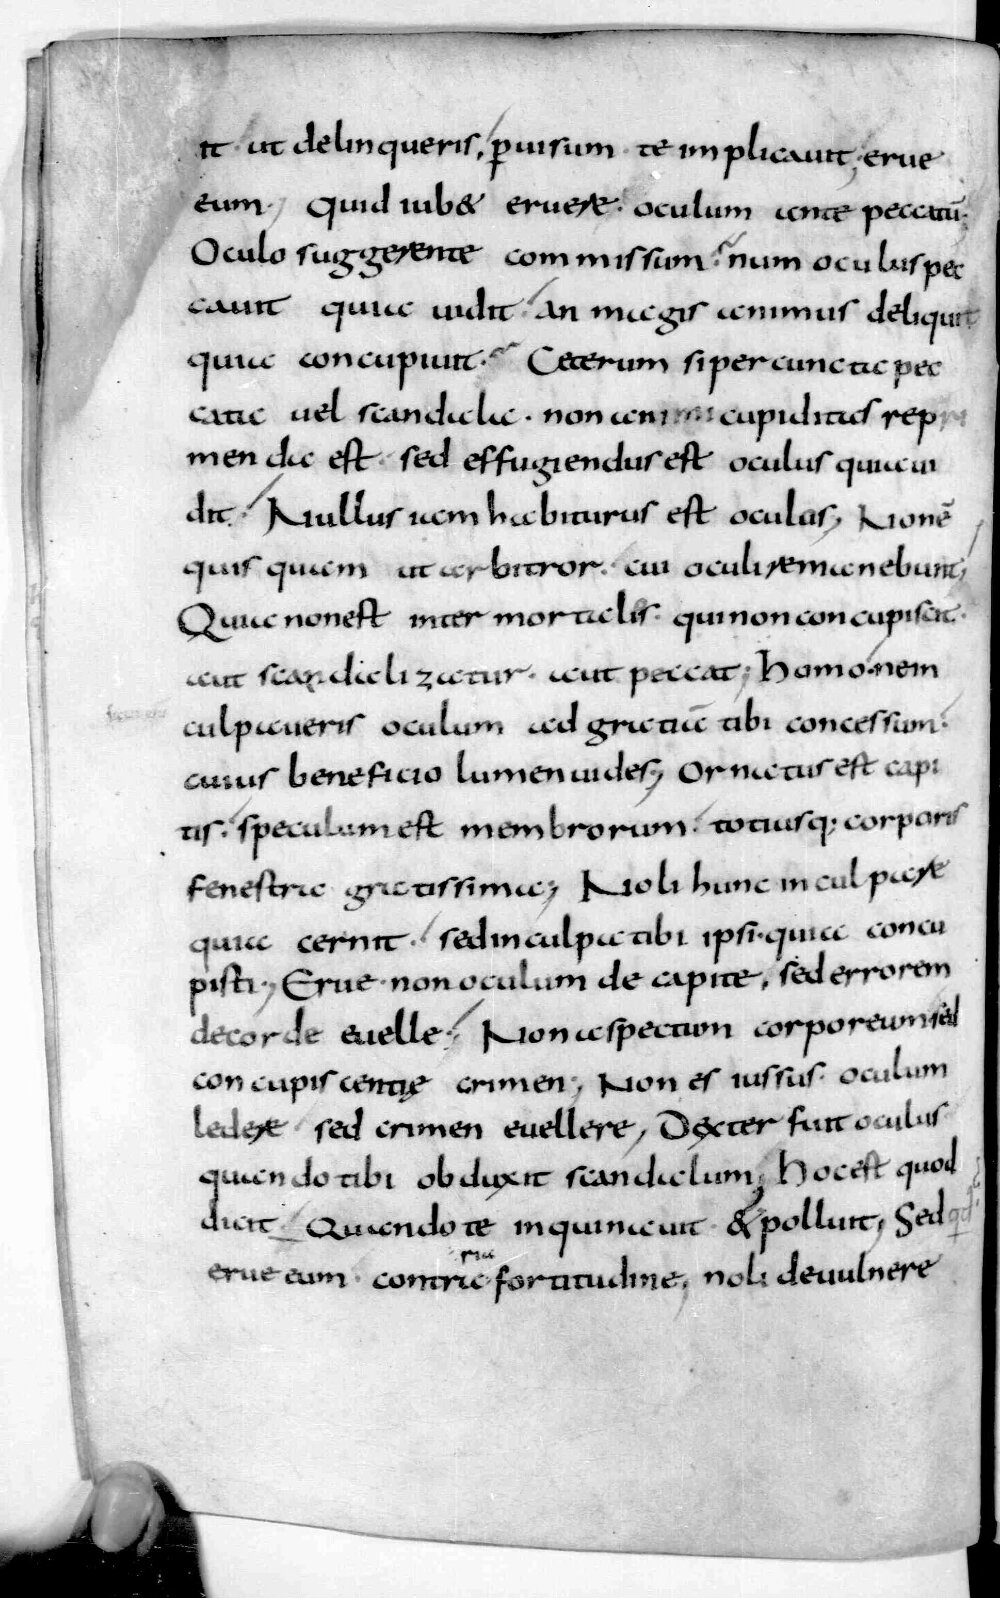 it · ut delinqueris, ꝑuisum · te implicauit; erue
eum ·; quid iub& eruere · oculum ante peccatū ·;
Oculo suggerente commissum · num oculus pec
cauit quia uidit · an magis animus deliquit
quia concupiuit · Ceterum si per cuncta pec
cata uel scandala · non animi cupiditas repri
menda est · sed effugiendus est oculus quia ui
dit · Nullus iam habiturus est oculus; Nonē
quisquam ut arbitror · cui oculi remanebunt;
Quia non est inter mortalis · qui non concupiscit ·
aut scandalizatur · aut peccat; homo · nem
culpaueris oculum ad gratiā tibi concessum ·
cuius beneficio lumen uides; Ornatus est capi
tis · speculum est membrorum · totiusq; corporis
fenestra gratissima; Noli hunc inculpare
quia cernit · sed inculpa tibi ipsi · quia concu
pisti ·; Erue · non oculum de capite, sed errorem
de corde euelle ·; Non aspectum corporeum sed
concupiscentię crimen; Non es iussus · oculum
ledere sed crimen euellere; Dexter fuit oculus
quando tibi obduxit scandalum; hoc est quod
dicit · Quando te inquinauit · & polluit; Sed
erue eum · contraria · fortitudine; noli de uulnere